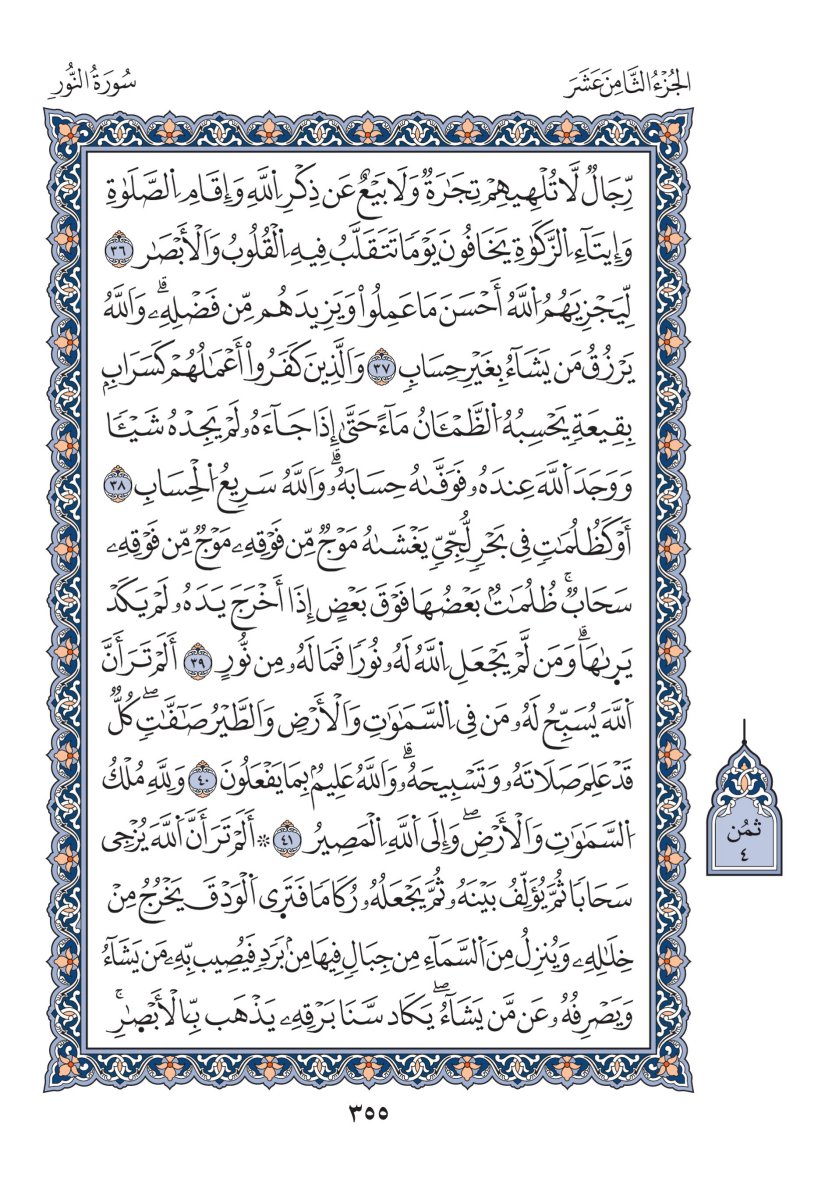 الجُزْءُ الثَّامِنَ عَشَرَ
سُورَةُ النُّورِ
رِّجَالٌ لَّا تُلْهِيهِمْ تِجَٰرَةٌ وَلَا بَيْعٌ عَن ذِكْرِ اِ۬للَّهِ وَإِقَامِ اِ۬لصَّلَوٰةِ
وَإِيتَآءِ اِ۬لزَّكَوٰةِ يَخَافُونَ يَوْمًا تَتَقَلَّبُ فِيهِ اِ۬لْقُلُوبُ وَالْأَبْصَٰرُ ٣٦
لِّيَجْزِيَهُمُ اُ۬للَّهُ أَحْسَنَ مَا عَمِلُواْ وَيَزِيدَهُم مِّن فَضْلِهِۦۗ وَاللَّهُ
يَرْزُقُ مَن يَشَآءُ بِغَيْرِ حِسَابٖ ٣٧ وَالَّذِينَ كَفَرُواْ أَعْمَٰلُهُمْ كَسَرَابِۢ
بِقِيعَةٖ يَحْسِبُهُ اُ۬لظَّمْـَٔانُ مَآءً حَتَّىٰٓ إِذَا جَآءَهُۥ لَمْ يَجِدْهُ شَيْـٔٗا
وَوَجَدَ اَ۬للَّهَ عِندَهُۥ فَوَفَّىٰهُ حِسَابَهُۥۗ وَاللَّهُ سَرِيعُ اُ۬لْحِسَابِ ٣٨
أَوْ كَظُلُمَٰتٖ فِي بَحْرٖ لُّجِّيّٖ يَغْشَىٰهُ مَوْجٌ مِّن فَوْقِهِۦ مَوْجٌ مِّن فَوْقِهِۦ
سَحَابٌۚ ظُلُمَٰتٌۢ بَعْضُهَا فَوْقَ بَعْضٍ إِذَا أَخْرَجَ يَدَهُۥ لَمْ يَكَدْ
يَرِىٰهَاۗ وَمَن لَّمْ يَجْعَلِ اِ۬للَّهُ لَهُۥ نُورٗا فَمَا لَهُۥ مِن نُّورٍ ٣٩ أَلَمْ تَرَ أَنَّ
اَ۬للَّهَ يُسَبِّحُ لَهُۥ مَن فِي اِ۬لسَّمَٰوَٰتِ وَالْأَرْضِ وَالطَّيْرُ صَٰٓفَّٰتٖۖ كُلّٞ
قَدْ عَلِمَ صَلَاتَهُۥ وَتَسْبِيحَهُۥۗ وَاللَّهُ عَلِيمُۢ بِمَا يَفْعَلُونَ ٤٠ وَلِلَّهِ مُلْكُ
اُ۬لسَّمَٰوَٰتِ وَالْأَرْضِۖ وَإِلَى اَ۬للَّهِ اِ۬لْمَصِيرُ ٤١ ۞ أَلَمْ تَرَ أَنَّ اَ۬للَّهَ يُزْجِي
سَحَابٗا ثُمَّ يُؤَلِّفُ بَيْنَهُۥ ثُمَّ يَجْعَلُهُۥ رُكَامٗا فَتَرَى اَ۬لْوَدْقَ يَخْرُجُ مِنْ
خِلَٰلِهِۦ وَيُنزِلُ مِنَ اَ۬لسَّمَآءِ مِن جِبَالٖ فِيهَا مِنۢ بَرَدٖ فَيُصِيب بِّهِۦ مَن يَشَآءُ
وَيَصْرِفُهُۥ عَن مَّن يَشَآءُۖ يَكَاد سَّنَا بَرْقِهِۦ يَذْهَب بِّالْأَبْصِٰرِۚ
ثمُن
٤
٣٥٥